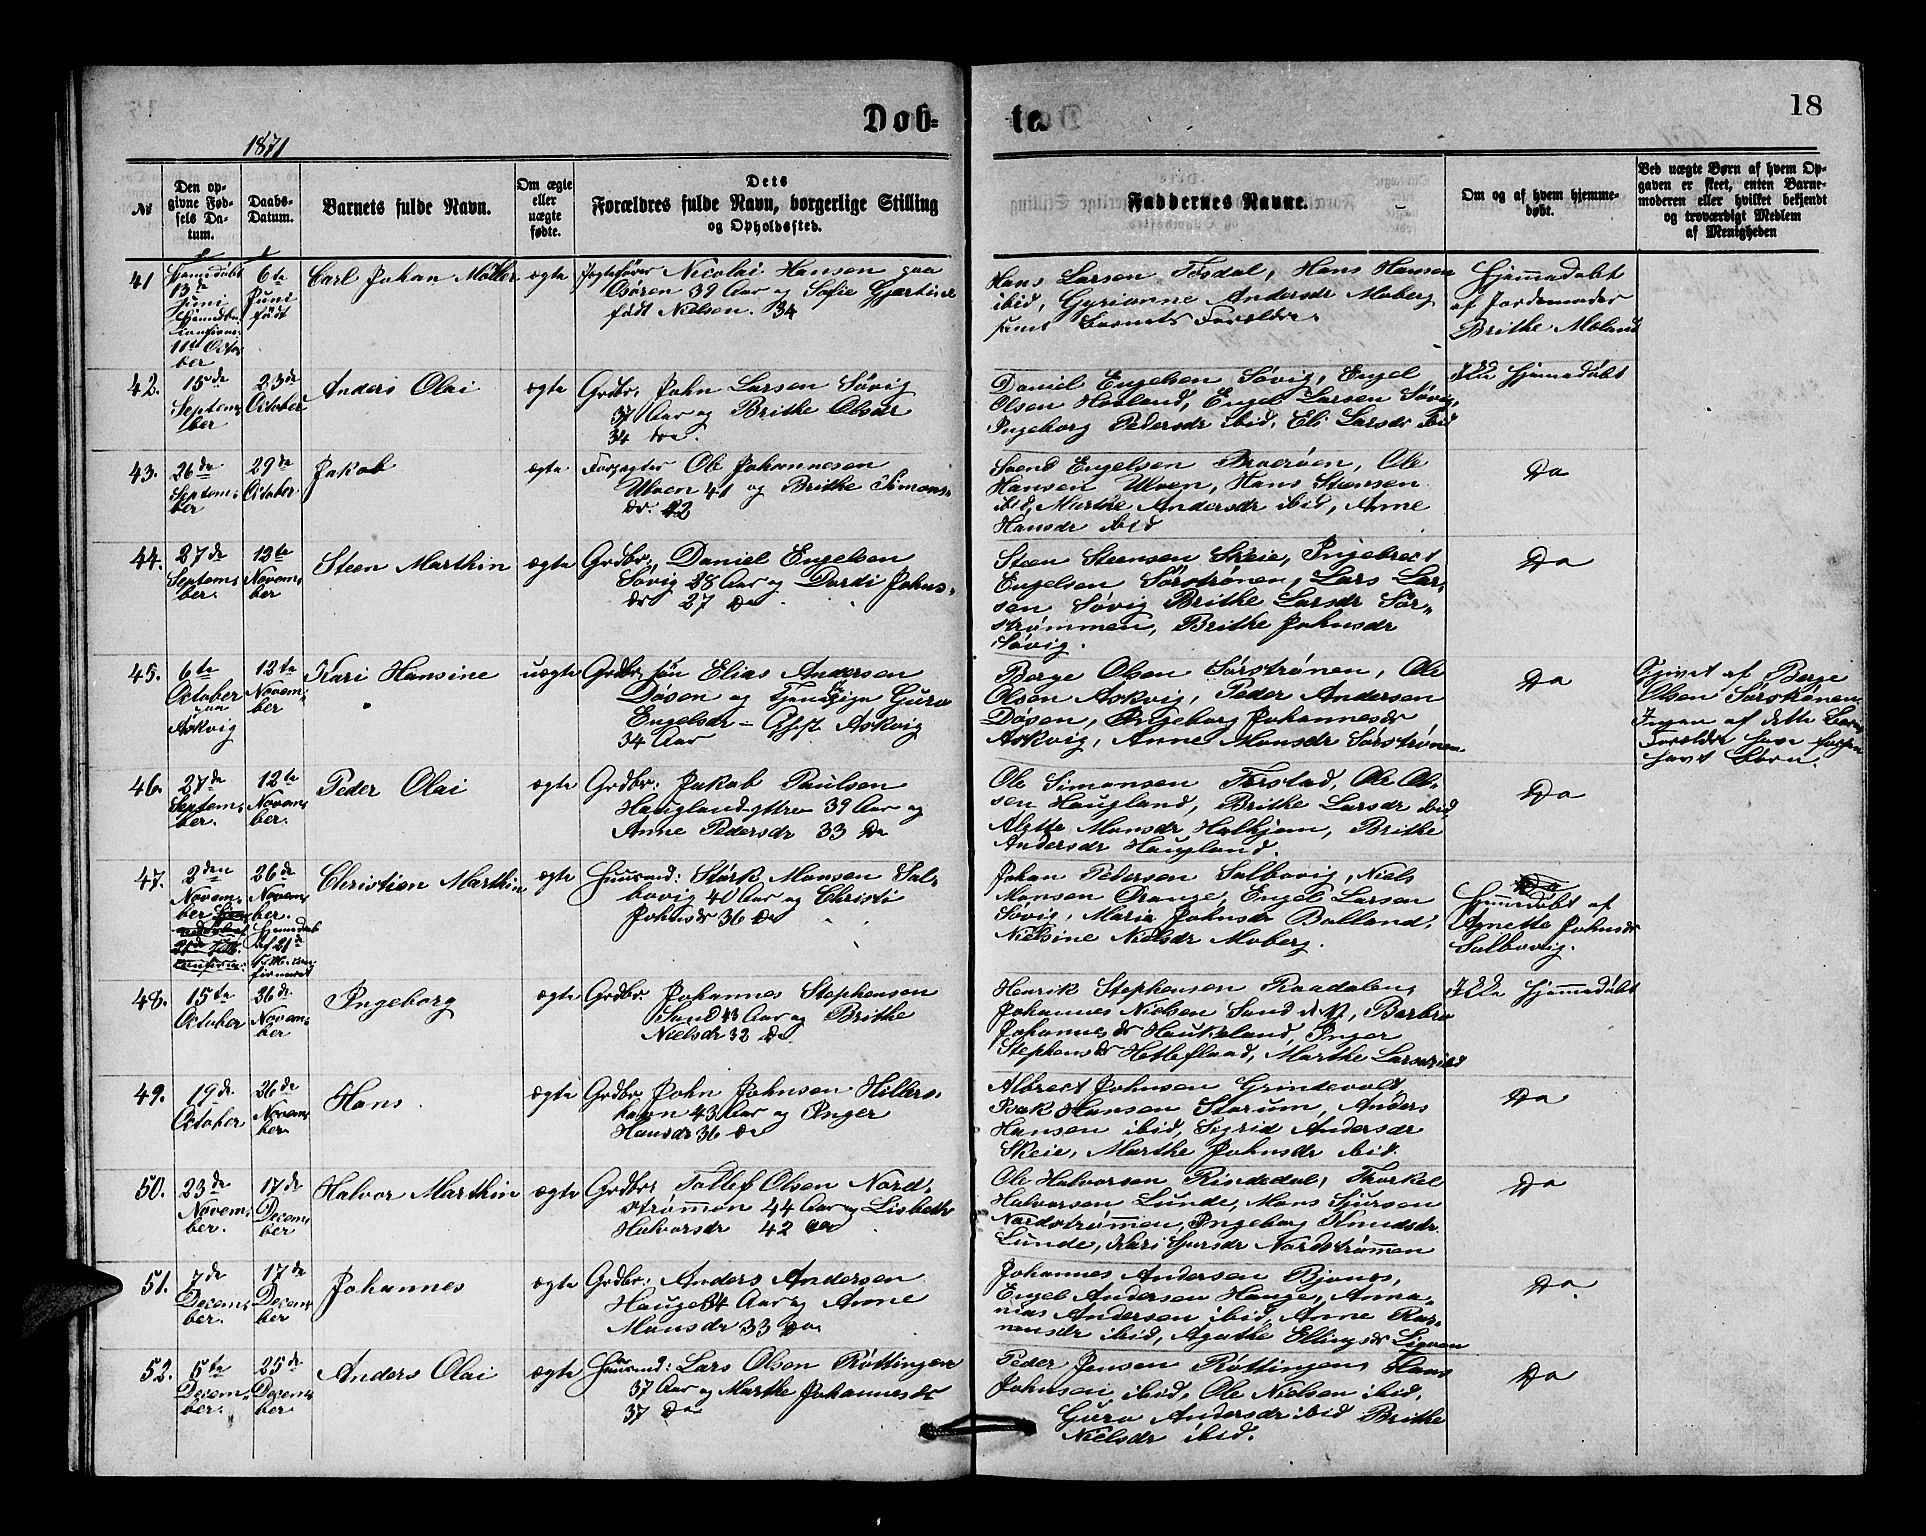 18
Døb- te.
1871
No
Den op-
givne Fød-
sels Da-
tum.
Daabs-
Datum.
Barnets fulde Navn.
Om ægte
eller
uægte
fødte.
Dets
Forældres fulde Navn, borgerlige Stilling
og Opholdssted.
Faddernes Navne.
Om og af hvem hjemme-
døbt.
Ved uægte Børn af hvem Op-
gaven er skeet, enten Barne-
moderen eller hvilket bekjendt
og troværdigt Medlem
af Menigheden
41
Hjemedøbt
13de
Juni
11te Octo-
ber
6te
Juni
født
Carl Johan Møller
ægte
Jægtefører Nicolai Hansen paa
Osøren 39 Aar og Sofie Gjertine
født Nielsen. 34
Hans Larsen Tøsdal, Hans Hansen
ibid, Gyrianne Andersdr Moberg
samt Barnets Forældre.
Hjemmedøbt
af Jordemoder
Brithe Moland
42.
15de
Septem-
ber
23de
October
Anders Olai
ægte
Grdbr. John Larsen Søvig
37 Aar og Brithe Olsdr
34 do.
Daniel Engelsen Søvig, Engel
Olsen Hovland, Engel Larsen Søvig,
Ingeborg Pedersdr ibid, Eli Larsdr ibid
Ikke hjemedøbt
43.
26de
Septem-
ber
29de
October
Jakob
ægte
Forpagter Ole Johannesen
Ulven 41 og Brithe Simons-
dr. 42
Svend Engelsen Braerøen, Ole
Hansen Ulven, Hans Steensen
ibid, Marthe Andersdr ibid, Anne
Hansdr ibid
Do
44.
27de
Septem-
ber.
12te
Novem-
ber
Steen Marthin
ægte
Grdbr. Daniel Engelsen
Søvig 28 Aar og Dordi Johns-
dr 27 do
Steen Steensen Skeie, Ingebret
Engelsen Sørstrønen, Lars Lar-
sen Søvig Brithe Larsdr Sør-
strømmen, Brithe Johnsdr
Søvig.
Do
45.
6te
October
paa
Askvig
12te
Novem-
ber
Kari Hansine
uægte
Grdbr. søn Elias Andersen
Døsen og Tjenpige Guro
Engelsdr – Askvig
34 Aar
Børge Olsen Sørstrønen, Ole
Olsen Askvig, Peder Andersen
Døsen, Ingeborg Johannesdr
Askvig, Anne Monsdr Sørstrønen
Do
Opivet af Børge
Olsen Sørstrønen
Ingen af dette Barns
Forældre have forhen
havt Børn.
46.
27de
Septem-
ber.
12te
Novem-
ber.
Peder Olai
ægte
Grdbr. Jakob Paulsen
Haugland-yttre 39 Aar og
Anne Pedersdr 33 do
Ole Simonsen Førstad, Ole Ol-
sen Haugland, Brithe Larsdr ibid,
Alette Monsdr Halhjem, Brithe
Andersdr Haugland.
Do
47.
2den
Novem-
ber
26de
Novem-
ber.
hjemmedøb
af 21de
f.M. con-
firmeret
Christian Marthin
ægte
Huusmd: Størk Monsen Sal-
bovig 40 Aar og Christi
Johnsdr 36 do
Johan Pedersen Salbovig, Niels
Monsen Drange, Engel Larsen
Søvig, Maria Johnsdr Bolland,
Nielsine Nielsdr Moberg.
Do
Hjemmedøbt af
Agnette Johnsdr
Salbovig.
48.
15te
October
26de
Novem-
ber
Ingeborg
ægte
Grdbr. Johannes Stephensen
Sand 43 Aar og Brithe
Nielsdr 32 do.
Henrik Stephensen Raadalen,
Johannes Nielsen Sand , Barbro
Johannesdr Haukeland, Inger
Stephensdr Hetleflaad, Marthe Larsdr ibid
Ikke hjemmedøbt
49.
19de
October
26de
Novem-
ber.
Hans
ægte
Grdbr. John Johnsen Hillers-
havn 43 Aar og Inger
Hansdr 36 do
Albrect Johnsen Grindevold,
Hansen Storum, Anders
Hansen ibid, Sigrid Andersdr
Skeie, Marthe Johnsdr ibid.
Do
50.
23de
Novem-
ber.
17de
Decem-
ber
Halvor Marthin
ægte
Grdbr. Tollef Olsen Nord-
strømen 44 Aar og Lisbeth
Halvorsdr 42 do
Ole Halvorsen Rindedal, Thorkel
Halvorsen Lunde, Mons Sjursen
Nordstrømen, Ingeborg Knudsdr
Lunde, Kari Sjursdr Nordstrømen
Do
51.
7de
Decem-
ber.
17de
Decem-
ber
Johannes
ægte
Grdbr. Anders Andersen
Hauge 34 Aar og Anne
Monsdr 33 do
Johannes Andersen Bjones,
Engel Andersen Hauge, Anna-
nias Andersen ibid, Anne Ras-
musdr ibid, Agathe Ellingsdr Ligven
Do
52.
5te
Decem-
ber.
25de
Decem-
ber
Anders Olai
ægte
Huusmd: Lars Olsen Røttingen
37 Aar og Marthe Johannesdr
37 do
Peder Jensen Røttingen, Hans
Johnsen ibid, Ole Nielsen ibid,
Guro Andersdr ibid Brithe
Nielsdr ibid.
Do